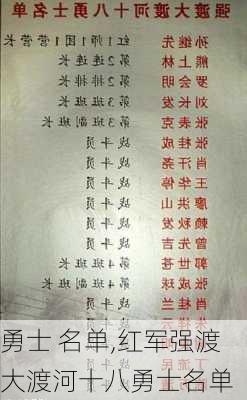 强渡大渡河十八勇士名单
孙继先 红1师1团1营营长
熊上林 第2连连长
罗会明 第2排排长
刘长发 第3班班长
张表克 第3班副班长
张桂成 战斗员
肖汗尧 战斗员
王华停 战斗员
廖洪山 战斗员
赖秋发 战斗员
曾先吉 战斗员
郭世苍 班长
张成球 副班长
肖桂兰 战斗员
勇士 名单,红军强渡
大渡河十八勇士名单